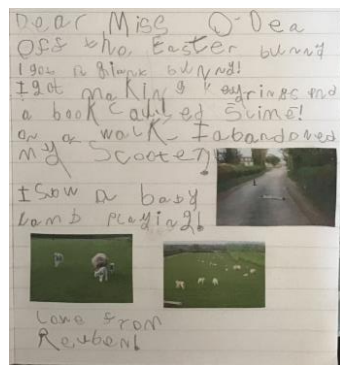 Dear Miss O-Dea
Off the Easter bunny
I got a bunny!
I got making keyrings and
a book called Slime!
on a walk I abandoned
my Scooter!
I Saw a baby
Lamb playing!
Love from
Reuben!